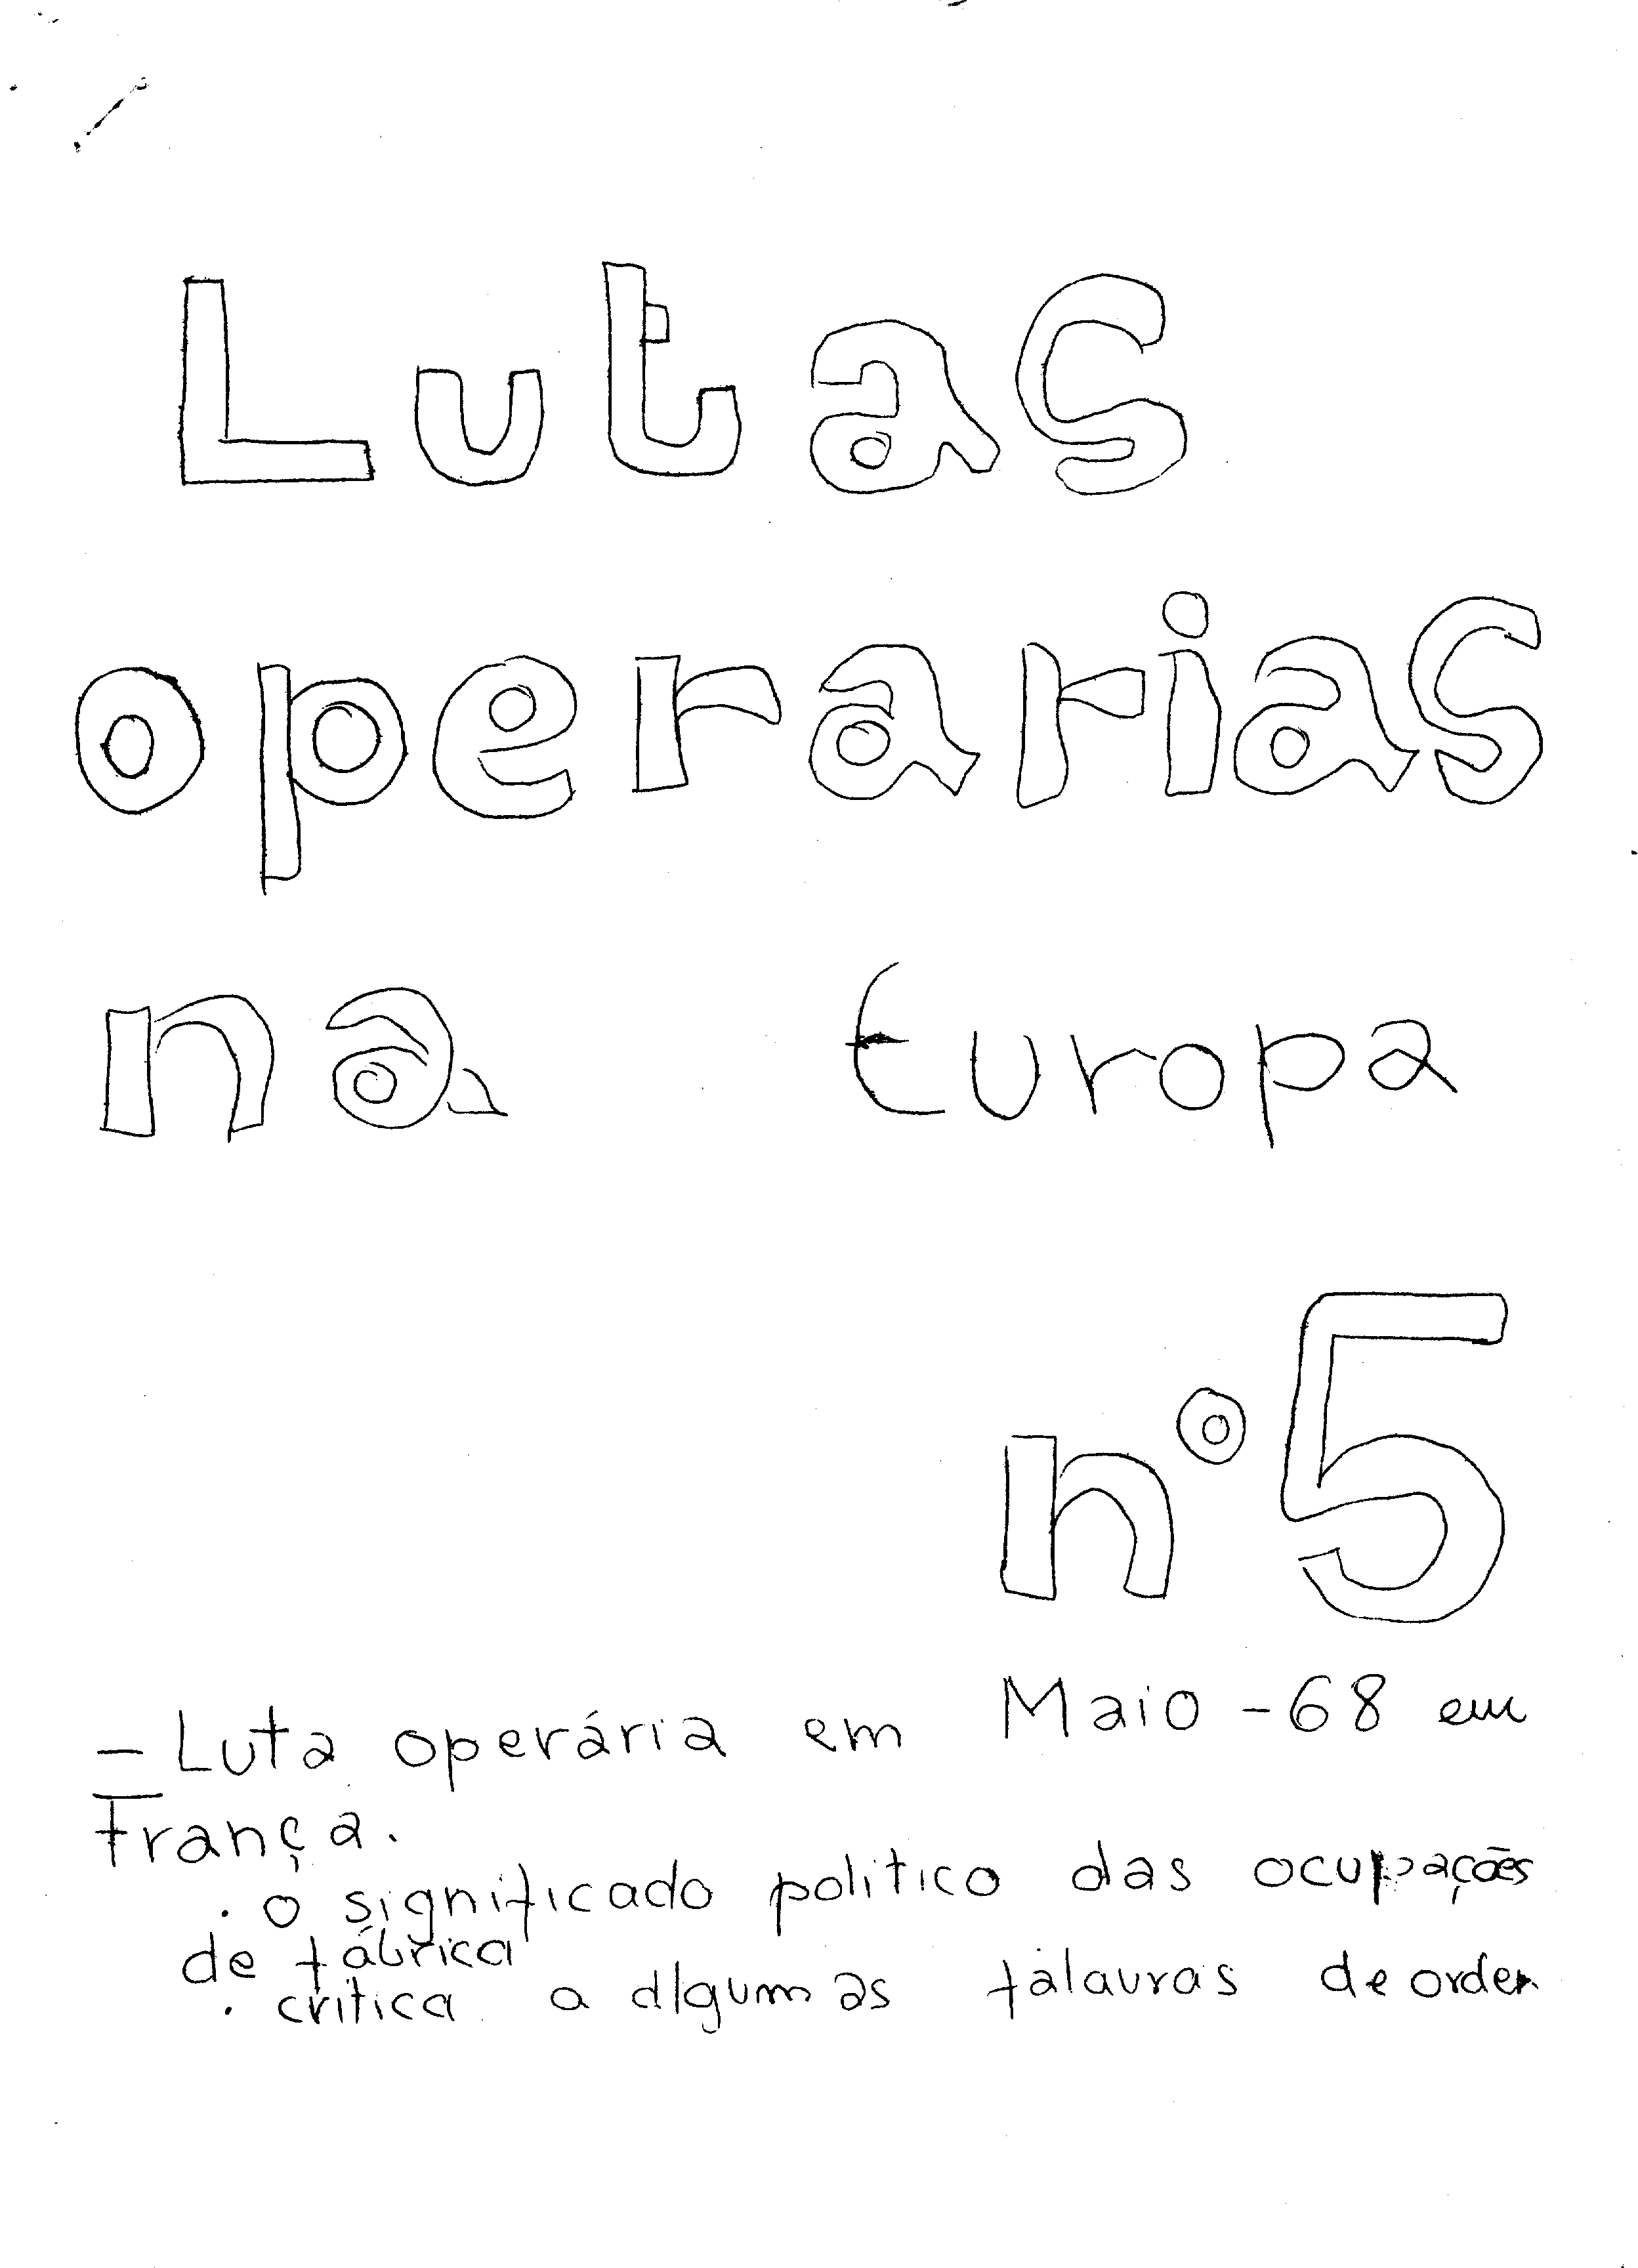 Lutas
operarias
na Europa
nº5
- Luta operária em Maio - 68 em
França.
. o significado politico das ocupações
de fábrica
. critica a algumas palavras de ordem